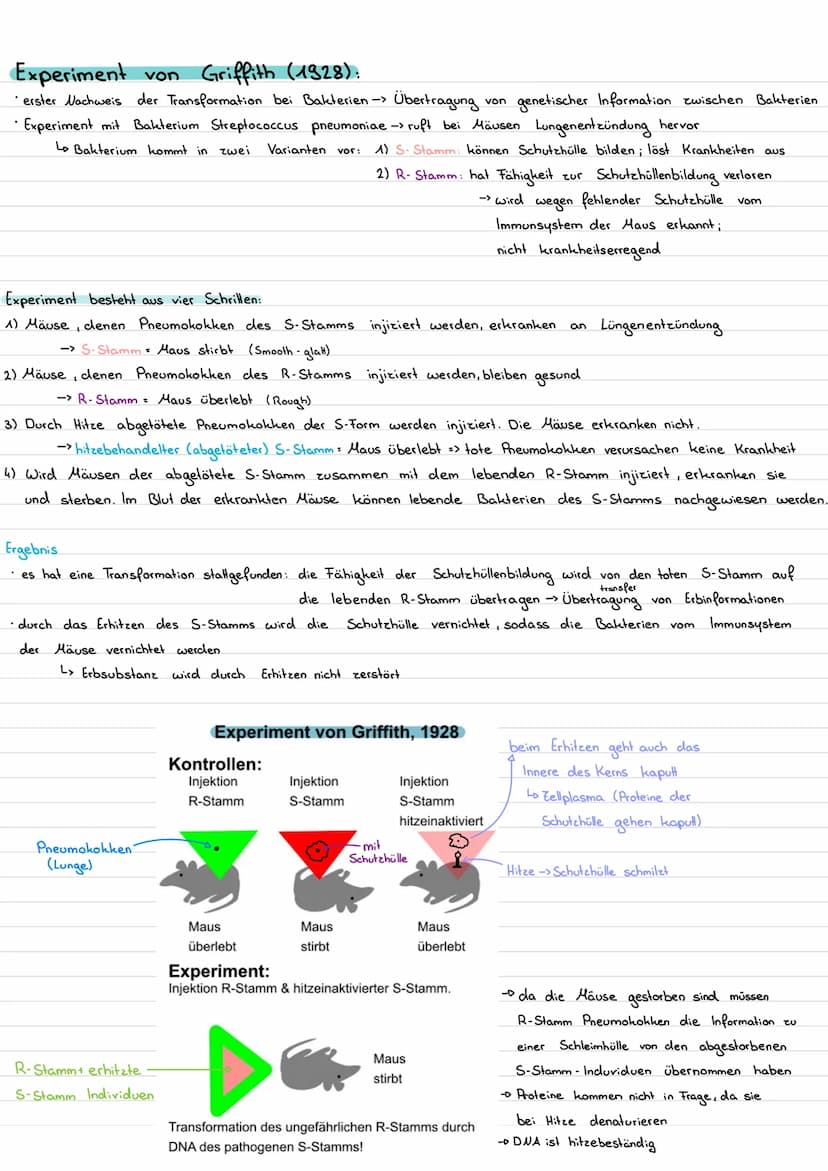 Experiment von Griffith (1928):
· erster Nachweis der Transformation bei Bakterien -> Übertragung von genetischer Information zwischen Bakterien
· Experiment mit Bakterium Streptococcus pneumoniae -> ruft bei Mäusen Lungenentzündung hervor
↳ Bakterium kommt in zwei Varianten vor: 1) S-Stamm: können Schutzhülle bilden; löst Krankheiten aus
2) R-Stamm: hat Fähigkeit zur Schutzhüllenbildung verloren
-> wird wegen fehlender Schutzhülle vom
Immunsystem der Maus erkannt;
nicht krankheitserregend
Experiment besteht aus vier Schritten:
1) Mäuse, denen Pneumokokken des S-Stamms injiziert werden, erkranken an Lüngenentzündung
-> S-Stamm = Maus stirbt (Smooth - glatt)
2) Mäuse, denen Pneumokokken des R-Stamms injiziert werden, bleiben gesund
-> R-Stamm = Maus überlebt (Rough)
3) Durch Hitze abgetötete Pneumokokken der S-Form werden injiziert. Die Mäuse erkranken nicht.
-> hitzebehandelter (abgetöteter) S-Stamm = Maus überlebt => tote Pneumokokken verursachen keine Krankheit
4) Wird Mäusen der abgetötete S-Stamm zusammen mit dem lebenden R-Stamm injiziert, erkranken sie
und sterben. Im Blut der erkrankten Mäuse können lebende Bakterien des S-Stamms nachgewiesen werden.
Ergebnis
· es hat eine Transformation stattgefunden: die Fähigkeit der Schutzhüllenbildung wird von den toten S-Stamm auf
transfer
die lebenden R-Stamm übertragen -> Übertragung von Erbinformationen
· durch das Erhitzen des S-Stamms wird die Schutzhülle vernichtet, sodass die Bakterien vom Immunsystem
der Mäuse vernichtet werden
↳ Erbsubstanz wird durch Erhitzen nicht zerstört
Experiment von Griffith, 1928
Kontrollen:
Injektion
R-Stamm
Injektion
S-Stamm
Injektion
S-Stamm
hitzeinaktiviert
beim Erhitzen geht auch das
Innere des Kerns kaputt
↳ Zellplasma (Proteine der
Schutzhülle gehen kaputt)
Pneumokokken
(Lunge)
mit
Schutzhülle
Hitze -> Schutzhülle schmilzt
Maus
überlebt
Maus
stirbt
Maus
überlebt
Experiment:
Injektion R-Stamm & hitzeinaktivierter S-Stamm.
R-Stamm + erhitzte
S-Stamm Individuen
Maus
stirbt
Transformation des ungefährlichen R-Stamms durch
DNA des pathogenen S-Stamms!
-> da die Mäuse gestorben sind müssen
R-Stamm Pneumokokken die Information zu
einer Schleimhülle von den abgestorbenen
S-Stamm-Induviduen übernommen haben
-> Proteine kommen nicht in Frage, da sie
bei Hitze denaturieren
-> DNA ist hitzebeständig